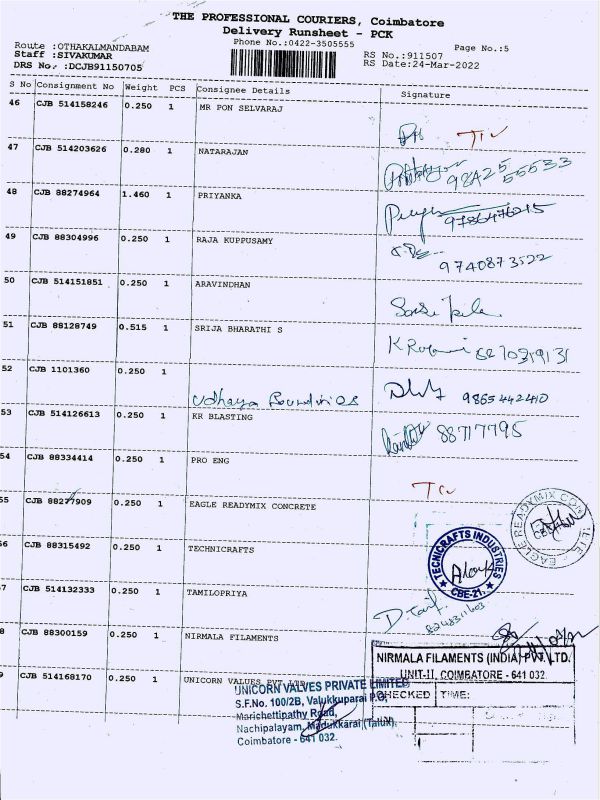 THE PROFESSIONAL COURIERS, Coimbatore
Delivery Runsheet - PCK
Phone No.:0422-3505555
Page No.:5
Route :OTHAKALMANDABAM
Staff :SIVAKUMAR
DRS No. :DCJB91150705
RS No.:911507
RS Date:24-Mar-2022
S No Consignment No Weight PCS Consignee Details Signature
46 CJB 514158246 0.250 1 MR PON SELVARAJ
47 CJB 514203626 0.280 1 NATARAJAN
98425 55533
48 CJB 88274964 1.460 1 PRIYANKA
9786476215
49 CJB 88304996 0.250 1 RAJA KUPPUSAMY
9740873522
50 CJB 514151851 0.250 1 ARAVINDHAN
51 CJB 88128749 0.515 1 SRIJA BHARATHI S
52 CJB 1101360 0.250 1
Udhaya Foundries 9865442410
53 CJB 514126613 0.250 1 KR BLASTING
88717795
54 CJB 88334414 0.250 1 PRO ENG
55 CJB 88277909 0.250 1 EAGLE READYMIX CONCRETE
EAGLE READYMIX
56 CJB 88315492 0.250 1 TECHNICRAFTS
TECNICRAFTS INDUSTRIES
CBE-21.
7 CJB 514132333 0.250 1 TAMILOPRIYA
8 CJB 88300159 0.250 1 NIRMALA FILAMENTS
NIRMALA FILAMENTS (INDIA) PVT. LTD.
UNIT-II, COIMBATORE - 641 032.
CHECKED TIME:
9 CJB 514168170 0.250 1 UNICORN VALVES PVT LTD
UNICORN VALVES PRIVATE LIMITED
S.F.No. 100/2B, Valukkuparai P.O,
Marichettipathy Road,
Nachipalayam, Madukkarai (Taluk),
Coimbatore - 641 032.